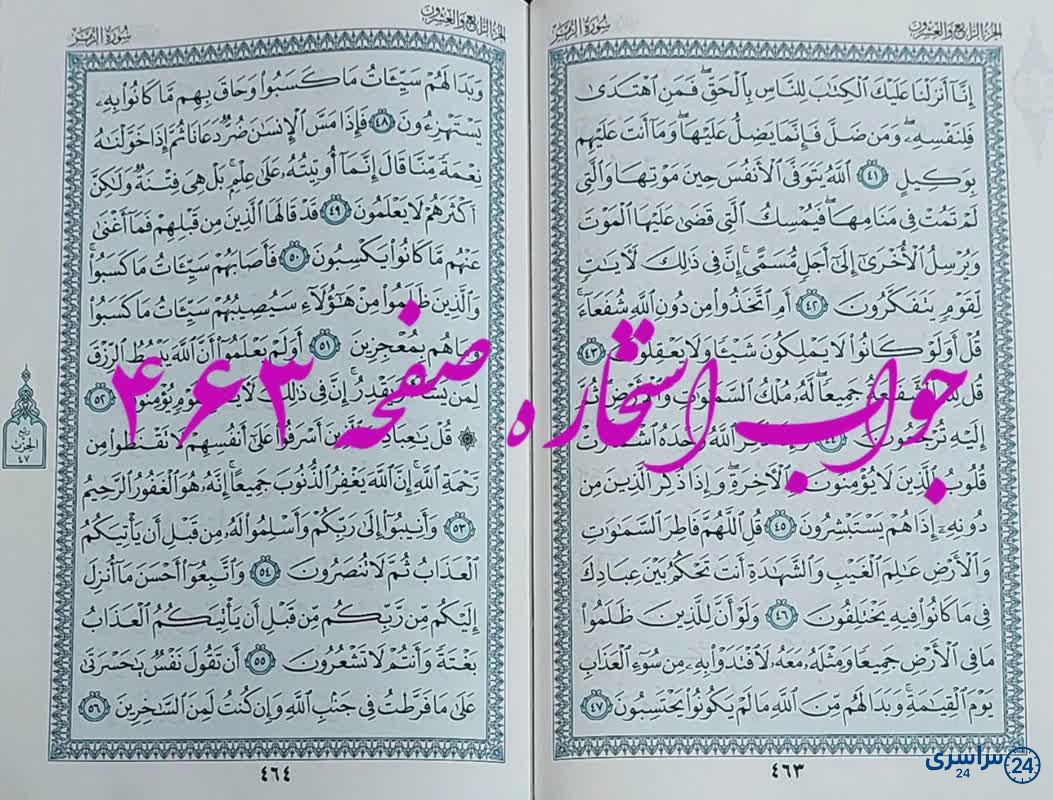 الجزء الرابع والعشرون
سورة الزمر
إِنَّآ أَنزَلْنَا عَلَيْكَ ٱلْكِتَٰبَ لِلنَّاسِ بِٱلْحَقِّ ۖ فَمَنِ ٱهْتَدَىٰ
فَلِنَفْسِهِۦ ۖ وَمَن ضَلَّ فَإِنَّمَا يَضِلُّ عَلَيْهَا ۖ وَمَآ أَنتَ عَلَيْهِم
بِوَكِيلٍ ٤١ ٱللَّهُ يَتَوَفَّى ٱلْأَنفُسَ حِينَ مَوْتِهَا وَٱلَّتِى
لَمْ تَمُتْ فِى مَنَامِهَا ۖ فَيُمْسِكُ ٱلَّتِى قَضَىٰ عَلَيْهَا ٱلْمَوْتَ
وَيُرْسِلُ ٱلْأُخْرَىٰٓ إِلَىٰٓ أَجَلٍ مُّسَمًّى ۚ إِنَّ فِى ذَٰلِكَ لَءَايَٰتٍ
لِّقَوْمٍ يَتَفَكَّرُونَ ٤٢ أَمِ ٱتَّخَذُوا۟ مِن دُونِ ٱللَّهِ شُفَعَآءَ ۚ
قُلْ أَوَلَوْ كَانُوا۟ لَا يَمْلِكُونَ شَيْـًٔا وَلَا يَعْقِلُونَ ٤٣
قُل لِّلَّهِ ٱلشَّفَٰعَةُ جَمِيعًا ۖ لَّهُۥ مُلْكُ ٱلسَّمَٰوَٰتِ وَٱلْأَرْضِ ۖ ثُمَّ
إِلَيْهِ تُرْجَعُونَ ٤٤ وَإِذَا ذُكِرَ ٱللَّهُ وَحْدَهُ ٱشْمَأَزَّتْ
قُلُوبُ ٱلَّذِينَ لَا يُؤْمِنُونَ بِٱلْءَاخِرَةِ ۖ وَإِذَا ذُكِرَ ٱلَّذِينَ مِن
دُونِهِۦٓ إِذَا هُمْ يَسْتَبْشِرُونَ ٤٥ قُلِ ٱللَّهُمَّ فَاطِرَ ٱلسَّمَٰوَٰتِ
وَٱلْأَرْضِ عَٰلِمَ ٱلْغَيْبِ وَٱلشَّهَٰدَةِ أَنتَ تَحْكُمُ بَيْنَ عِبَادِكَ
فِى مَا كَانُوا۟ فِيهِ يَخْتَلِفُونَ ٤٦ وَلَوْ أَنَّ لِلَّذِينَ ظَلَمُوا۟
مَا فِى ٱلْأَرْضِ جَمِيعًا وَمِثْلَهُۥ مَعَهُۥ لَٱفْتَدَوْا۟ بِهِۦ مِن سُوٓءِ ٱلْعَذَابِ
يَوْمَ ٱلْقِيَٰمَةِ ۚ وَبَدَا لَهُم مِّنَ ٱللَّهِ مَا لَمْ يَكُونُوا۟ يَحْتَسِبُونَ ٤٧
٤٦٣
الجزء الرابع والعشرون
سورة الزمر
وَبَدَا لَهُمْ سَيِّـَٔاتُ مَا كَسَبُوا۟ وَحَاقَ بِهِم مَّا كَانُوا۟ بِهِۦ
يَسْتَهْزِءُونَ ٤٨ فَإِذَا مَسَّ ٱلْإِنسَٰنَ ضُرٌّ دَعَانَا ثُمَّ إِذَا خَوَّلْنَٰهُ
نِعْمَةً مِّنَّا قَالَ إِنَّمَآ أُوتِيتُهُۥ عَلَىٰ عِلْمٍۭ ۚ بَلْ هِىَ فِتْنَةٌ وَلَٰكِنَّ
أَكْثَرَهُمْ لَا يَعْلَمُونَ ٤٩ قَدْ قَالَهَا ٱلَّذِينَ مِن قَبْلِهِمْ فَمَآ أَغْنَىٰ
عَنْهُم مَّا كَانُوا۟ يَكْسِبُونَ ٥٠ فَأَصَابَهُمْ سَيِّـَٔاتُ مَا كَسَبُوا۟ ۚ
وَٱلَّذِينَ ظَلَمُوا۟ مِنْ هَٰٓؤُلَآءِ سَيُصِيبُهُمْ سَيِّـَٔاتُ مَا كَسَبُوا۟
وَمَا هُم بِمُعْجِزِينَ ٥١ أَوَلَمْ يَعْلَمُوٓا۟ أَنَّ ٱللَّهَ يَبْسُطُ ٱلرِّزْقَ
لِمَن يَشَآءُ وَيَقْدِرُ ۚ إِنَّ فِى ذَٰلِكَ لَءَايَٰتٍ لِّقَوْمٍ يُؤْمِنُونَ ٥٢
۞ قُلْ يَٰعِبَادِىَ ٱلَّذِينَ أَسْرَفُوا۟ عَلَىٰٓ أَنفُسِهِمْ لَا تَقْنَطُوا۟ مِن
رَّحْمَةِ ٱللَّهِ ۚ إِنَّ ٱللَّهَ يَغْفِرُ ٱلذُّنُوبَ جَمِيعًا ۚ إِنَّهُۥ هُوَ ٱلْغَفُورُ ٱلرَّحِيمُ
٥٣ وَأَنِيبُوٓا۟ إِلَىٰ رَبِّكُمْ وَأَسْلِمُوا۟ لَهُۥ مِن قَبْلِ أَن يَأْتِيَكُمُ
ٱلْعَذَابُ ثُمَّ لَا تُنصَرُونَ ٥٤ وَٱتَّبِعُوٓا۟ أَحْسَنَ مَآ أُنزِلَ
إِلَيْكُم مِّن رَّبِّكُم مِّن قَبْلِ أَن يَأْتِيَكُمُ ٱلْعَذَابُ
بَغْتَةً وَأَنتُمْ لَا تَشْعُرُونَ ٥٥ أَن تَقُولَ نَفْسٌ يَٰحَسْرَتَىٰ
عَلَىٰ مَا فَرَّطتُ فِى جَنۢبِ ٱللَّهِ وَإِن كُنتُ لَمِنَ ٱلسَّٰخِرِينَ ٥٦
٤٦٤
الحزب
٤٧
جواب استخاره صفحه ۴۶۳
سراسری 24
24